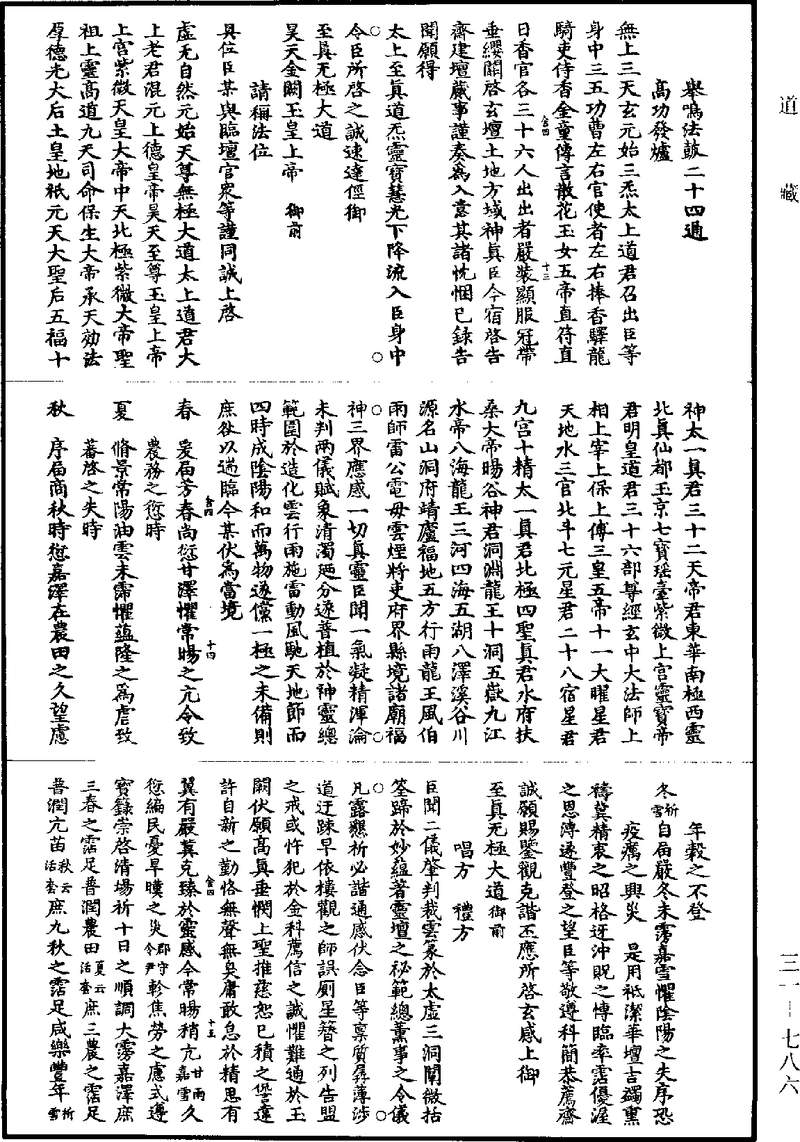 道藏
舉鳴法鼓二十四通
高功發爐
無上三天玄元始三炁太上道君召出臣等
身中三五功曹左右官使者左右捧香驛龍
騎吏侍香金童傳言散花玉女五帝直符直
日香官各三十六人出出者嚴裝顯服冠帶
垂纓關啓玄壇土地方域神真臣今宿啓告
齋建壇蕆事謹奏爲入意其諸忱悃已錄告
聞願得
太上至真道炁靈寶慧光下降流入臣身中
令臣所啓之誠速達徑御
至真无極大道
昊天金闕玉皇上帝 御前
請稱法位
具位臣某與臨壇官衆等謹同誠上啓
虛无自然元始天尊無極大道太上道君大
上老君混元上德皇帝昊天至尊玉皇上帝
上宮紫微天皇大帝中天北極紫微大帝聖
祖上靈高道九天司命保生大帝承天効法
厚德光大后土皇地祇元天大聖后五福十
神太一真君三十二天帝君東華南極西靈
北真仙都玉京七寶瑶臺紫微上宮靈寶帝
君明皇道君三十六部尊經玄中大法師上
相上宰上保上傅三皇五帝十一大曜星君
天地水三官北斗七元星君二十八宿星君
九宮十精太一真君北極四聖真君水府扶
桑大帝暘谷神君洞淵龍王十洞五嶽九江
水帝八海龍王三河四海五湖八澤溪谷川
源名山洞府靖廬福地五方行雨龍王風伯
雨師雷公電母雲煙將吏府界縣境諸廟福
神三界應感一切真靈臣聞一氣凝精渾淪
未判兩儀賦象清濁廼分遂普植於神靈總
範圍於造化雲行雨施雷動風馳天地節而
四時成陰陽和而萬物遂儻一極之未備則
庶徵以遄臨今某伏爲當境
春 爰届芳春尚愆甘澤懼常暘之亢令致
農務之愆時
夏 脩景常陽油雲未霈懼蘊隆之爲虐致
蕃啓之失時
秋 序届商秋時愆嘉澤在農田之久望慮
年穀之不登
冬祈雪 自届嚴冬未霶嘉雪懼陰陽之失序恐
疫癘之興災 是用祗潔華壇吉蠲熏
禱冀精衷之昭格迓沖貺之愽臨率霑優渥
之恩溥遂豐登之望臣等敬遵科簡恭薦齋
誠願賜鑒觀克諧丕應所啓玄感上御
至真无極大道 御前
唱方 禮方
臣聞二儀肇判裁雲篆於太虛三洞闡微括
筌蹄於妙蘊著靈壇之秘範總薰事之令儀
凡露懇祈必諧通感伏念臣等稟質孱薄涉
道迂踈早依樓觀之師誤厠星簪之列告盟
之戒或忤犯於金科薦信之誠懼難通於玉
闕伏願高真垂憫上聖推慈恕已積之𠎝違
許自新之勤恪無聲無臭庸敢怠於精思有
翼有嚴冀克臻於靈感今常暘稍亢甘雨嘉雪久
愆編民憂旱暵之災郡守令尹軫焦勞之慮式遵
寶籙崇啓清場祈十日之順調大霶嘉澤庶
三春之霑足普潤農田夏云活套庶三農之霑足
普潤亢苗秋云活套庶九秋之霑足咸樂豐年祈雪
三一—七八六